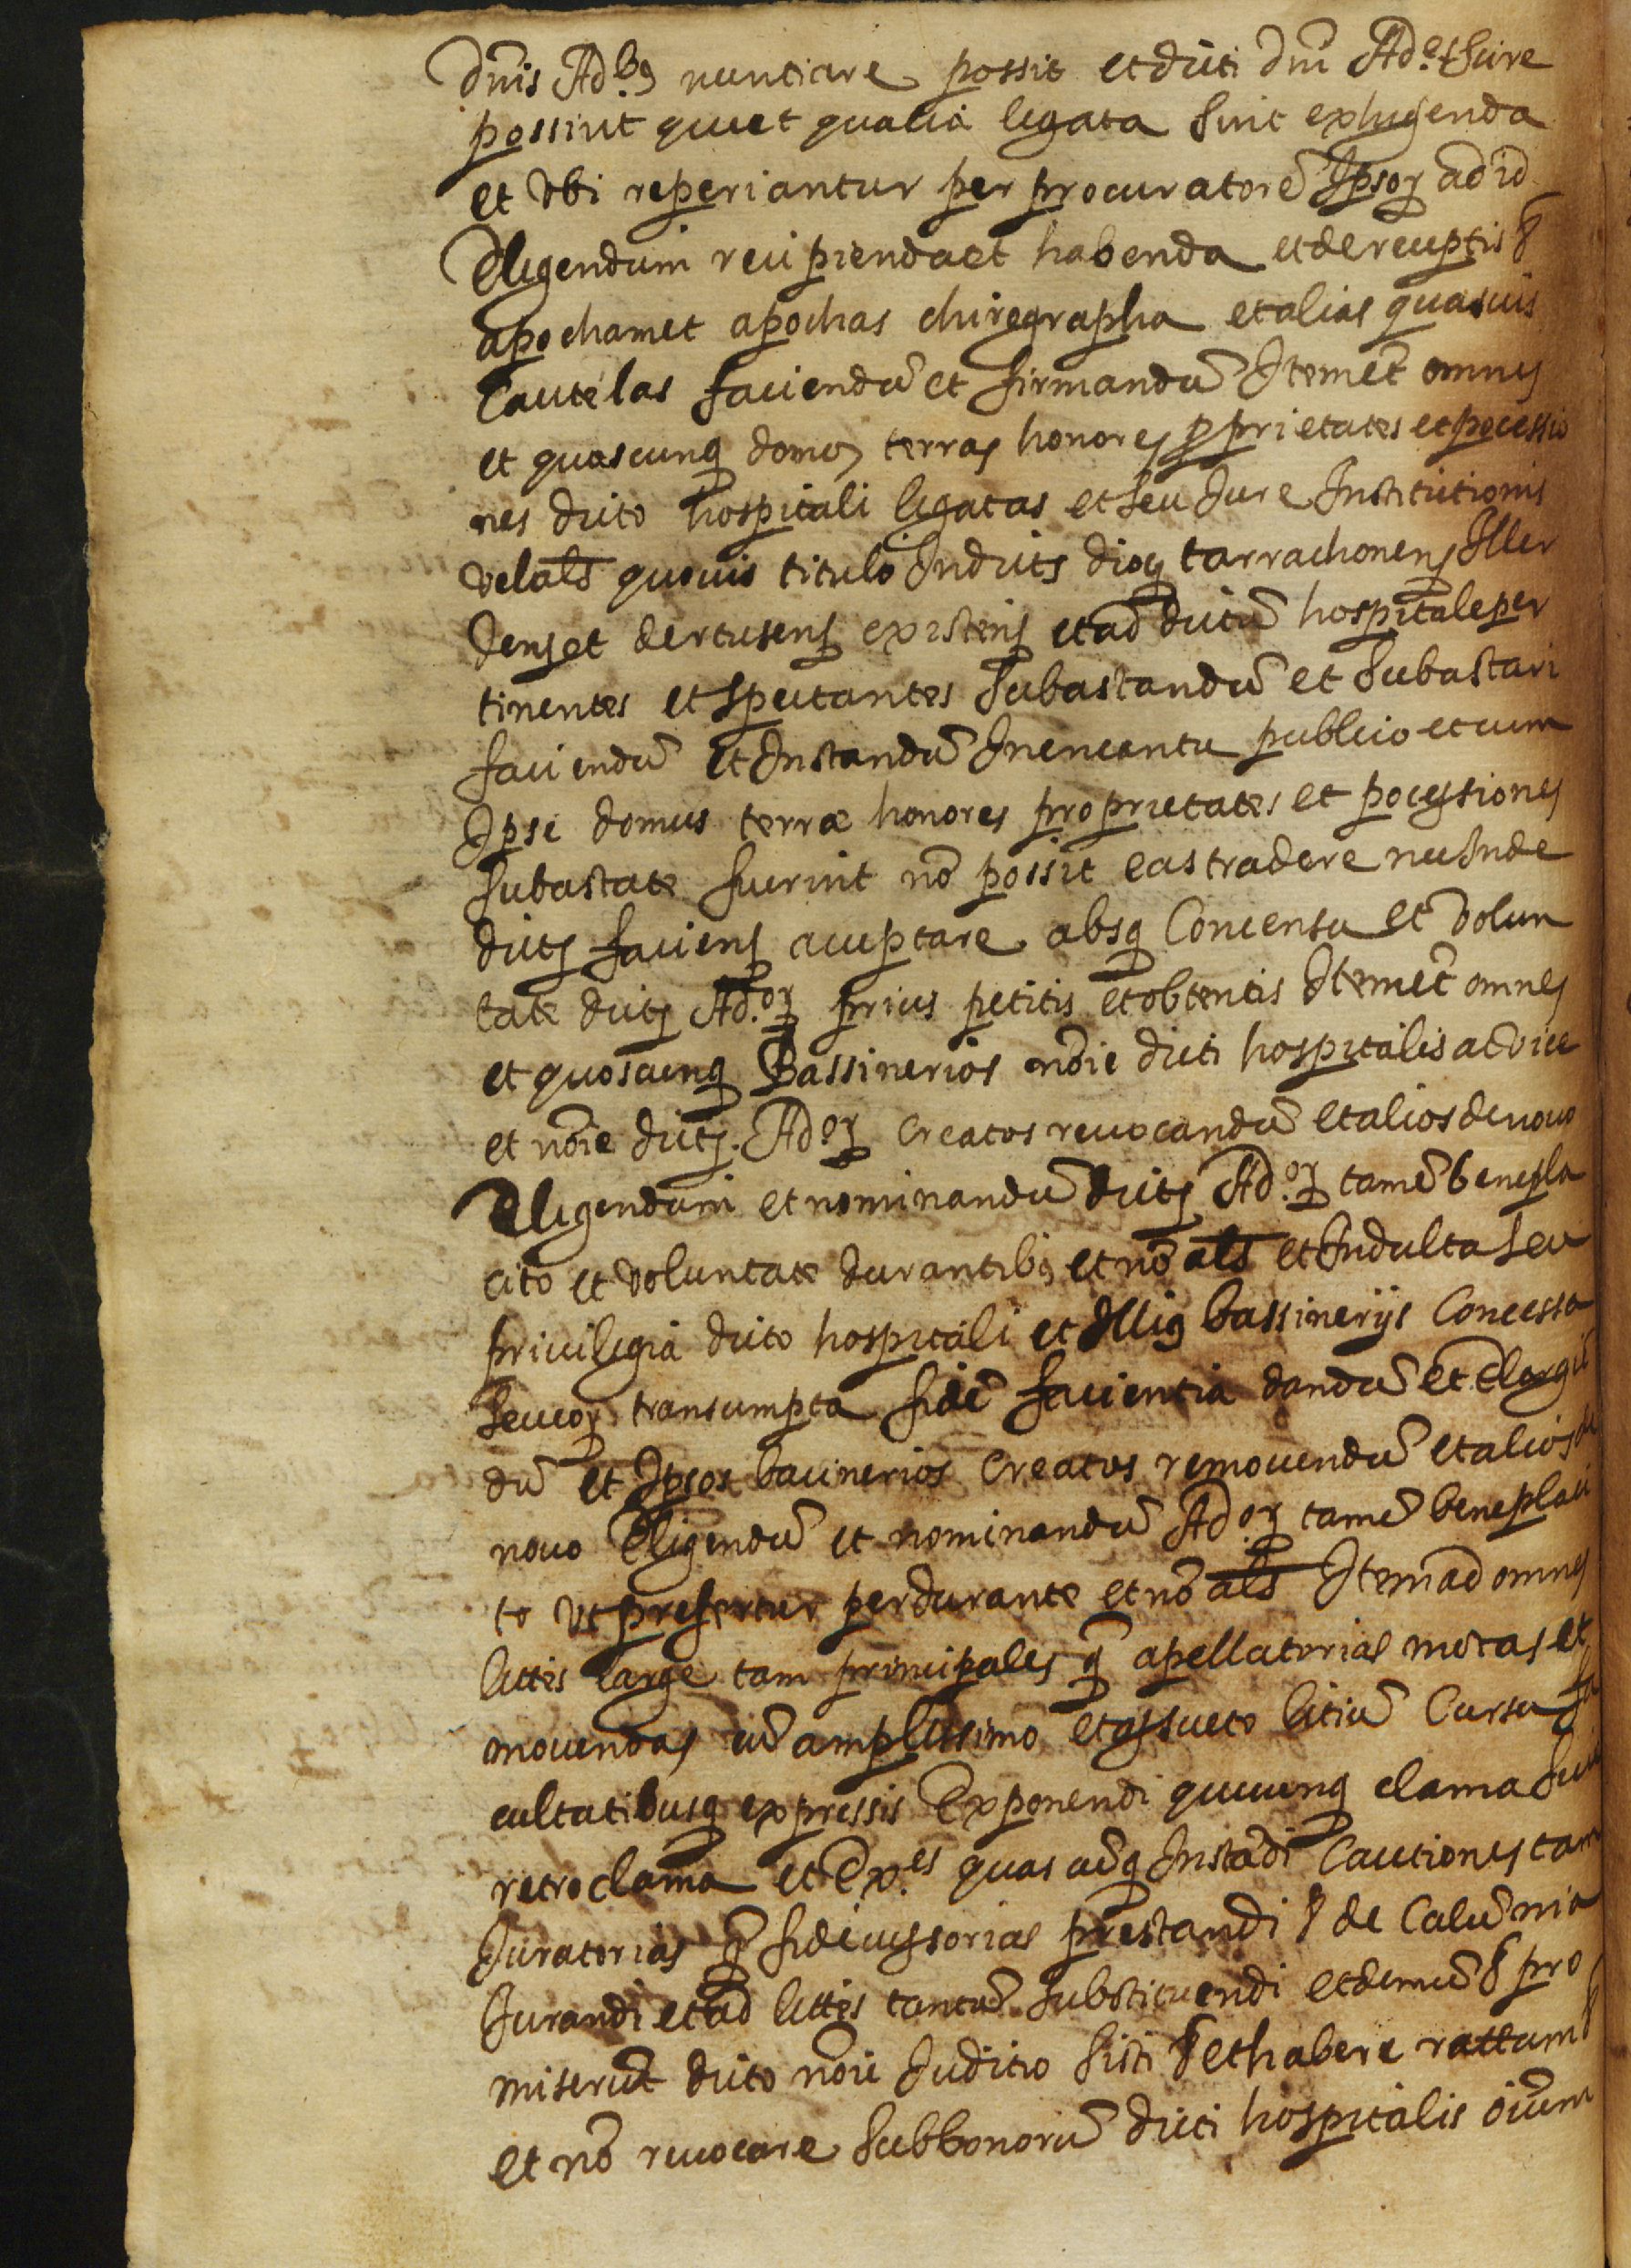 dn̄is Ad.bꝰ nuntiare possit et dicti dn̄i Ad.es Scire
possint que et qualia legata Sint exhigenda
et Vbi reperiantur per procuratorē Ipsoꝝ ad id
Eligendum recipienda et habenda et de receptis &
apocham et apochas chirographa et alias quasuis
Cautelas faciendū et firmandū Item et̄ omnes
et quascunqꝫ domos terras honores ꝓprietates et pocessio
nes dicto hospitali legatas et Seu Jure Institutionis
vel als̄ quouis titulo In dictis dioꝫ tarrachonensꝫ Iller
densꝫ et dertusensꝫ existensꝫ et ad dictū hospitale per
tinentes et Spectantes Subastandū et Subastari
faciendū et Instandū In encantu publico et cum
Ipse domus terræ honores proprietates et pocessiones
Subastate fuerint nō possit eas tradere nec Inde
dictꝫ faciensꝫ acceptare absqꝫ Concensu et volun
tate dictꝫ Ad.oꝝ prius petitis et obtentis Item et̄ omnes
et quoscunqꝫ Bassinerios nōie dicti hospitalis ac vice
et nōie dictꝫ Ad.oꝝ Creatos reuocandū et alios de nouo
Eligendum et nominandū dictꝫ Ad.oꝝ tamē benepla
cito et voluntate durantibꝰ et nō als̄ et Indulta Seu
priuilegia dicto hospitali et Illiꝰ bassinerijs Concessa
Seu eoꝝ transumpta fidē facientia dandū et Elargiē
dū et Ipsos bacinerios Creatos remouendū et alios de
nouo Eligendū et nominandū Ad.oꝝ tamē beneplaci
to Vt prefertur perdurante et nō als̄ Item ad omnes
littes large tam principales qꝫ apellatorias motas et
mouendas cū amplissimo et assueto litiū Cursu fa
cultatibusqꝫ expressis Exponendi quecunqꝫ clama Siue
retroclama et Ex.es quascūqꝫ Instādi Cautiones tam
Juratorias qꝫ fideiussorias prestandi & de Calūnia
Jurandi et ad littes tantū Substituendi et demū & pro
miserūt dicto nōie Juditio Sisti & et habere rattum &
et nō reuocare Sub bonorū dicti hospitalis oīum